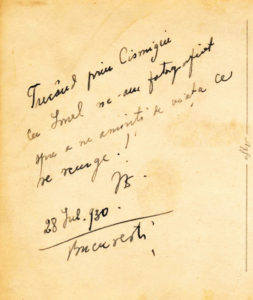 Trecând prin Cismigiu
cu Ionel ne-am fotografiat
spre a ne aminti de viața ce
se scurge!
28 Iul. 930.
Bucuresti